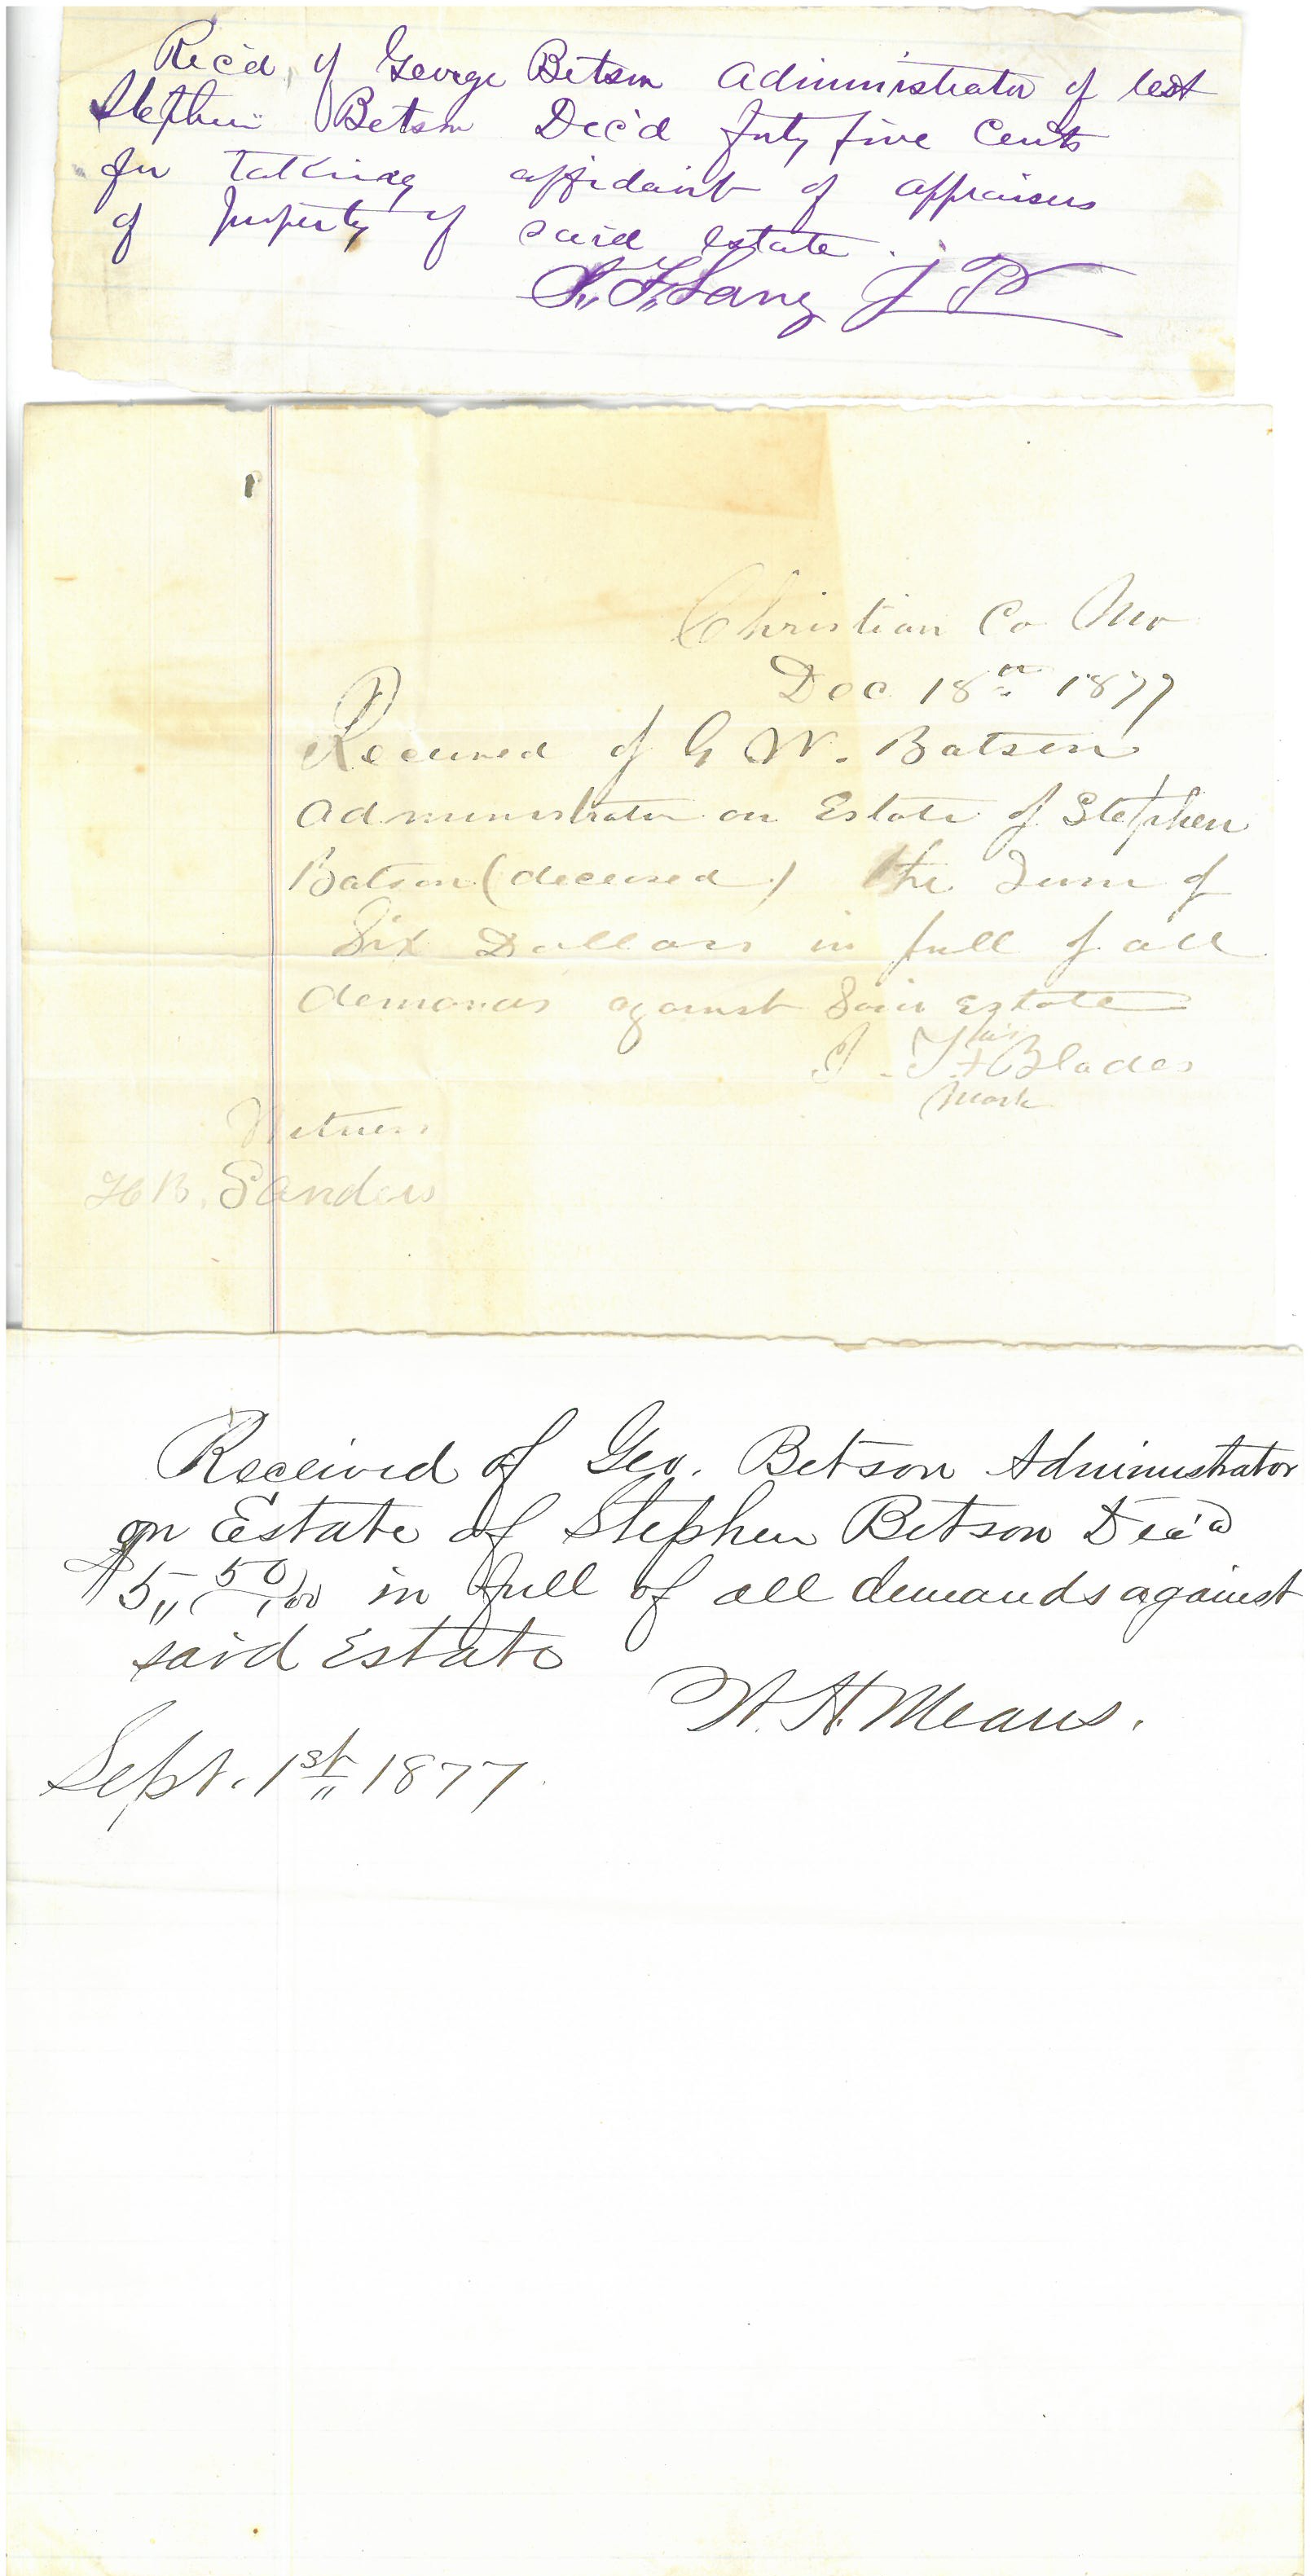 Rec'd, of George Betson Administrator of Est
Stephen Betson Dec'd forty five Cents
for taking affidavit of appraisers
of property of said Estate.
Lang J P
Christian Co Mo
Dec 18th 1877
Received of G W. Batson
Administrator on Estate of Stephen
Batson (deceased) the Sum of
Six Dollars in full of all
demands against Said Estate
his
J. F + Blades
mark
Witness
H B. Sanders
Received of Geo. Betson Administrator
on Estate of Stephen Betson Dec'd
$5,, 50/100 in full of all demands against
said Estate
W. H. Means.
Sept. 1st,, 1877